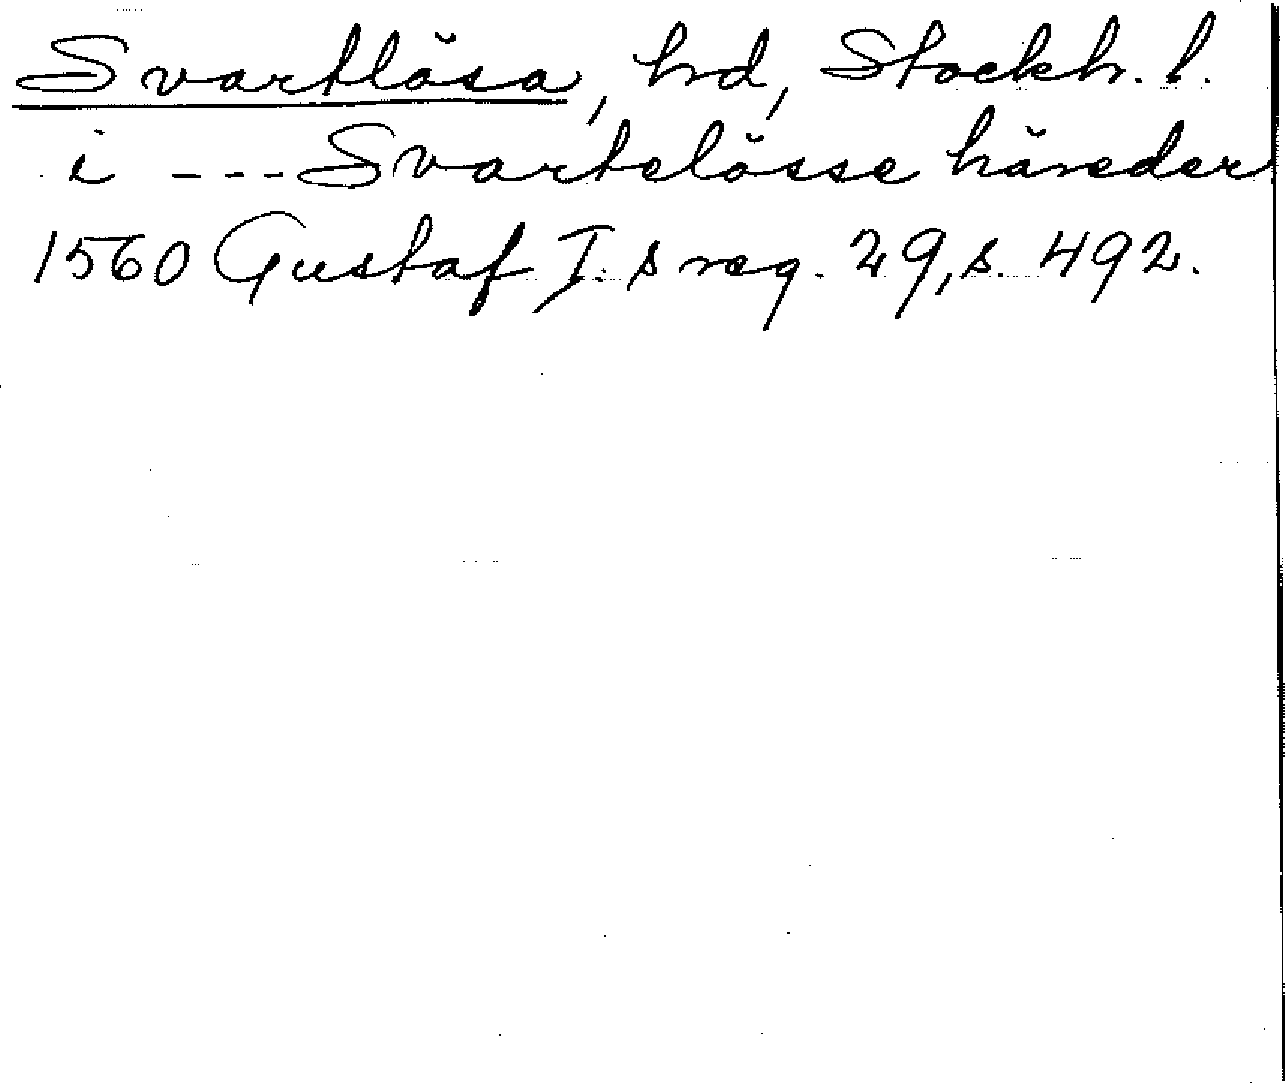 Svartlösa, hd, Stockh. l.
i --- Svartelösse häreder
1560 Gustaf I:s reg. 29, s. 492.